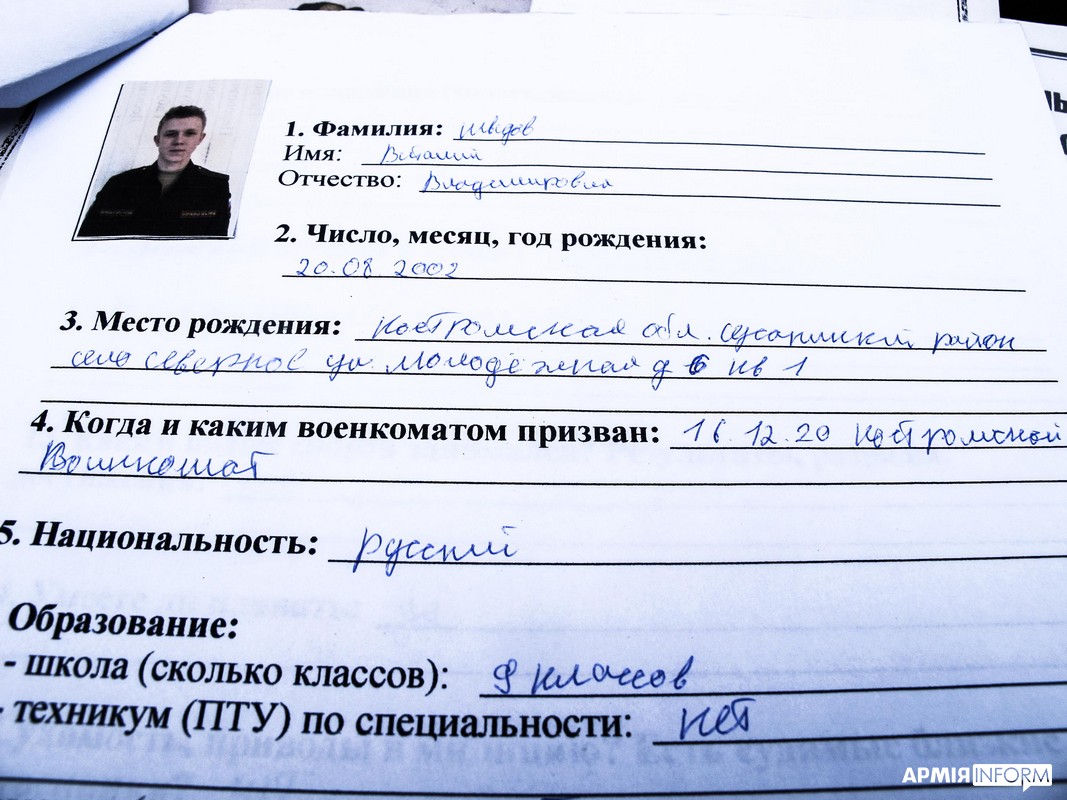 1. Фамилия: Шведов
Имя: Виталий
Отчество: Владимирович
2. Число, месяц, год рождения:
20.08.2002
3. Место рождения: Костромская обл. Сусанинский район
село Северное ул. Молодёжная д 6 кв 1
4. Когда и каким военкоматом призван: 16.12.20 Костромской
Воинкомат
5. Национальность: русский
Образование:
- школа (сколько классов): 9 классов
- техникум (ПТУ) по специальности: нет
АРМІЯINFORM